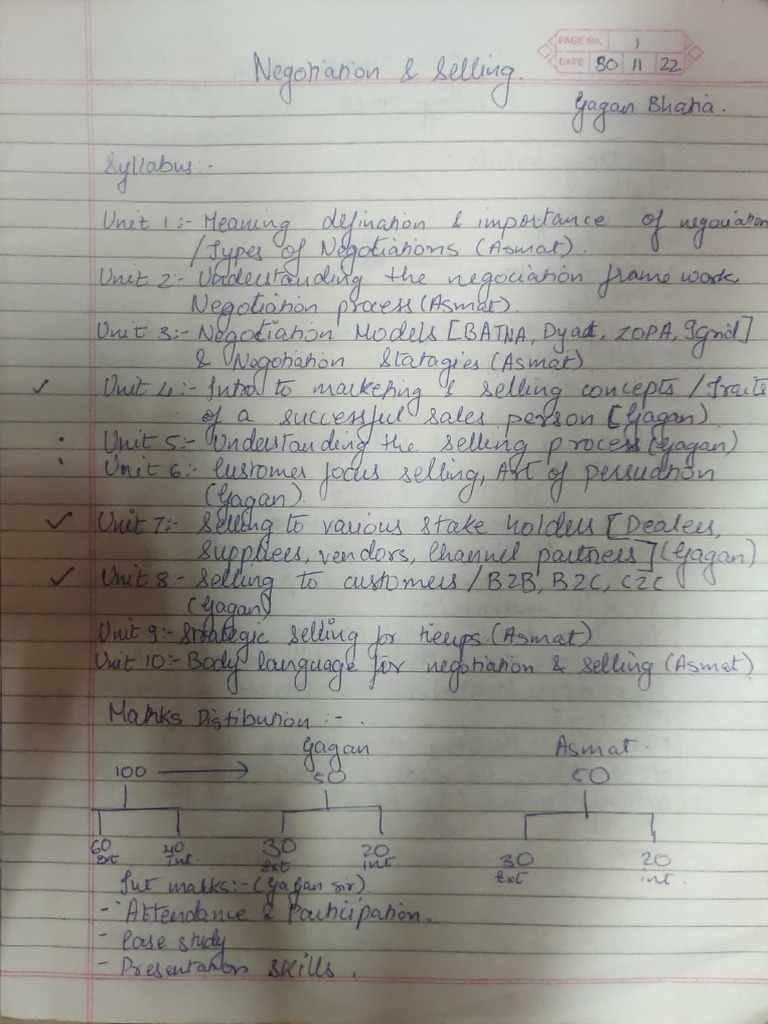 PAGE No. 1
DATE 30 11 22
Negotiation & Selling.
Gagan Bhatia.
Syllabus:-
Unit 1:- Meaning defination & importance of negociation
/Types of Negotiations (Asmat).
Unit 2- Understanding the negociation frame work,
Negotiation process (Asmat).
Unit 3:- Negotiation Models [BATNA, Dyad, ZOPA, 9grid]
& Negotiation Statagies (Asmat)
✓ Unit 4:- Intro to marketing & selling concepts / Traits
of a successful sales person [Gagan)
Unit 5:- Understanding the selling process (Gagan)
Unit 6:- Customer focus selling, Art of persuation
(Gagan).
✓ Unit 7:- Selling to various stake holders [Dealers,
Suppliers, vendors, Channel partners] (Gagan)
✓ Unit 8:- Selling to customers / B2B, B2C, C2C
(Gagan)
Unit 9:- Strategic selling for tieups. (Asmat)
Unit 10:- Body language for negotiation & selling (Asmat)
Marks Distibution :-.
Gagan Asmat.
100 → 50 50
60 40 30 20 30 20
Ext Int. Ext int Ext int.
Int marks:- (Gagan sir)
- Attendance & Participation.
- Case study
- Presentation skills.